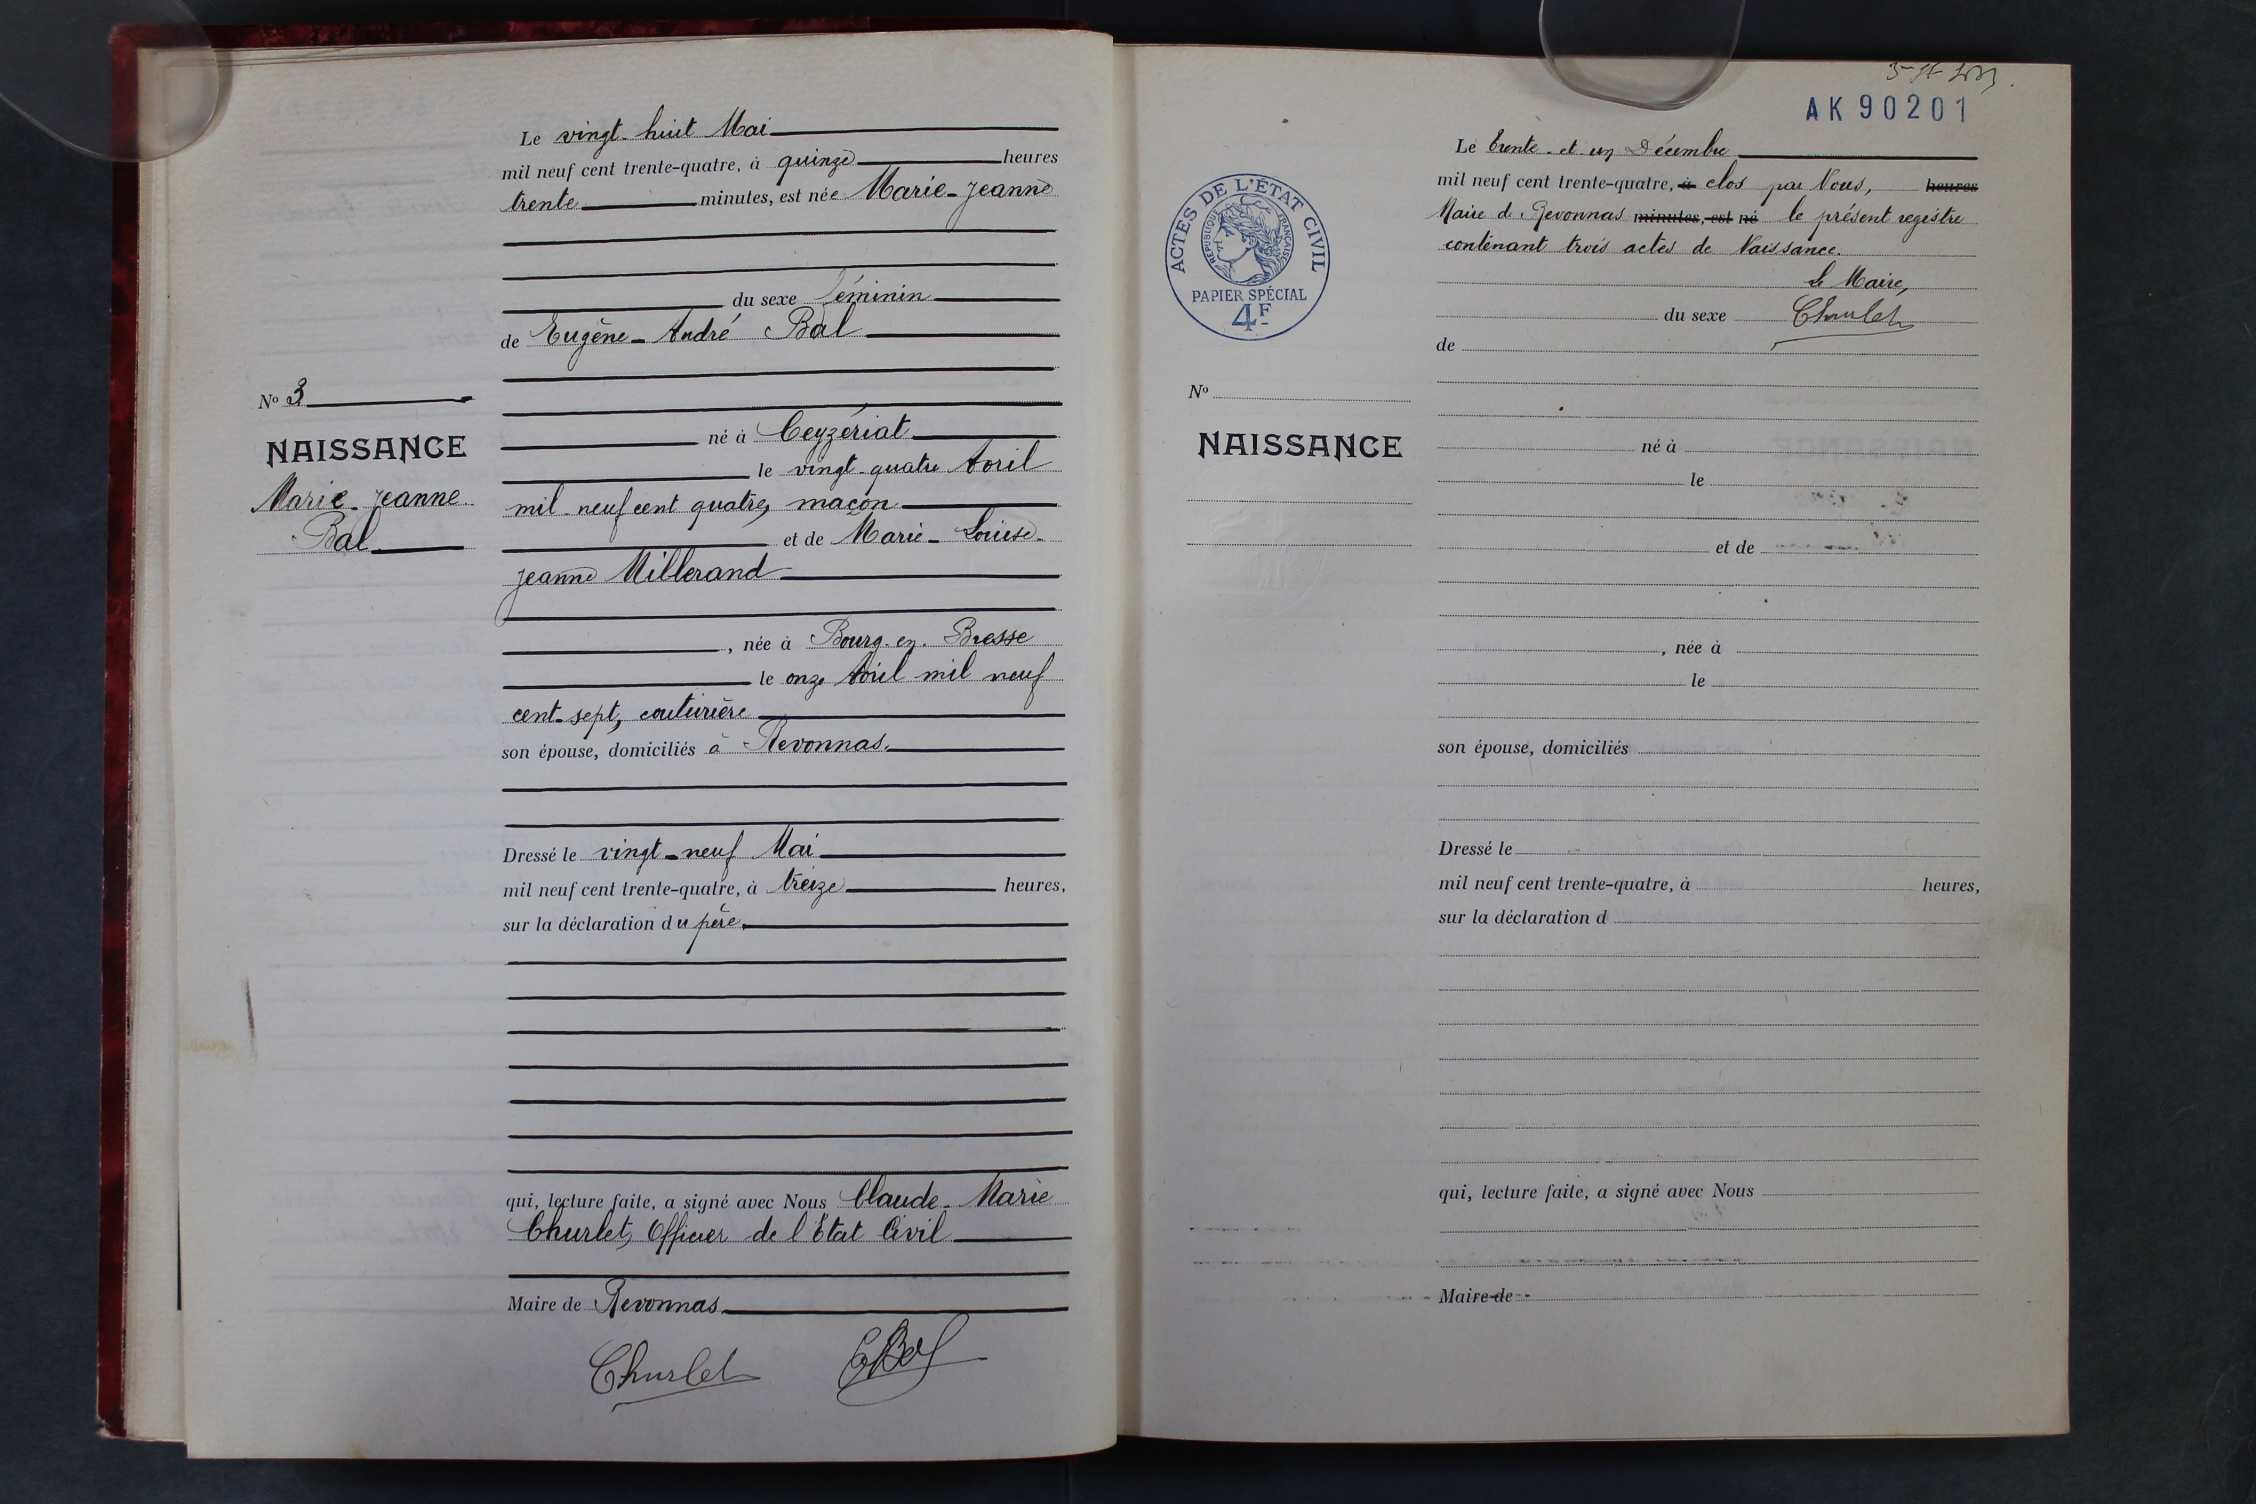 Le vingt-huit Mai
mil neuf cent trente-quatre, à quinze heures
trente minutes, est née Marie-Jeanne
du sexe féminin
de Eugène-André Bal
né à Ceyzériat
le vingt-quatre Avril
mil neuf cent quatre, maçon
et de Marie-Louise-
Jeanne Millerand
, née à Bourg-en-Bresse
le onze Avril mil neuf
cent-sept, couturière
son épouse, domiciliés à Revonnas.
Dressé le vingt-neuf Mai
mil neuf cent trente-quatre, à treize heures,
sur la déclaration du père.
qui, lecture faite, a signé avec Nous Claude-Marie
Churlet, Officier de l'Etat Civil
Maire de Revonnas
Churlet EBal
No 3
NAISSANCE
Marie-Jeanne
Bal
AK 90201
ACTES DE L'ÉTAT CIVIL
RÉPUBLIQUE FRANÇAISE
PAPIER SPÉCIAL
4F
No
NAISSANCE
Le trente-et-un Décembre
mil neuf cent trente-quatre, à clos par Nous, heures
Maire d. Revonnas minutes, est né le présent registre
contenant trois actes de Naissance.
Le Maire,
du sexe Churlet
de
né à
le
et de
, née à
le
son épouse, domiciliés
Dressé le
mil neuf cent trente-quatre, à heures,
sur la déclaration d
qui, lecture faite, a signé avec Nous
Maire de